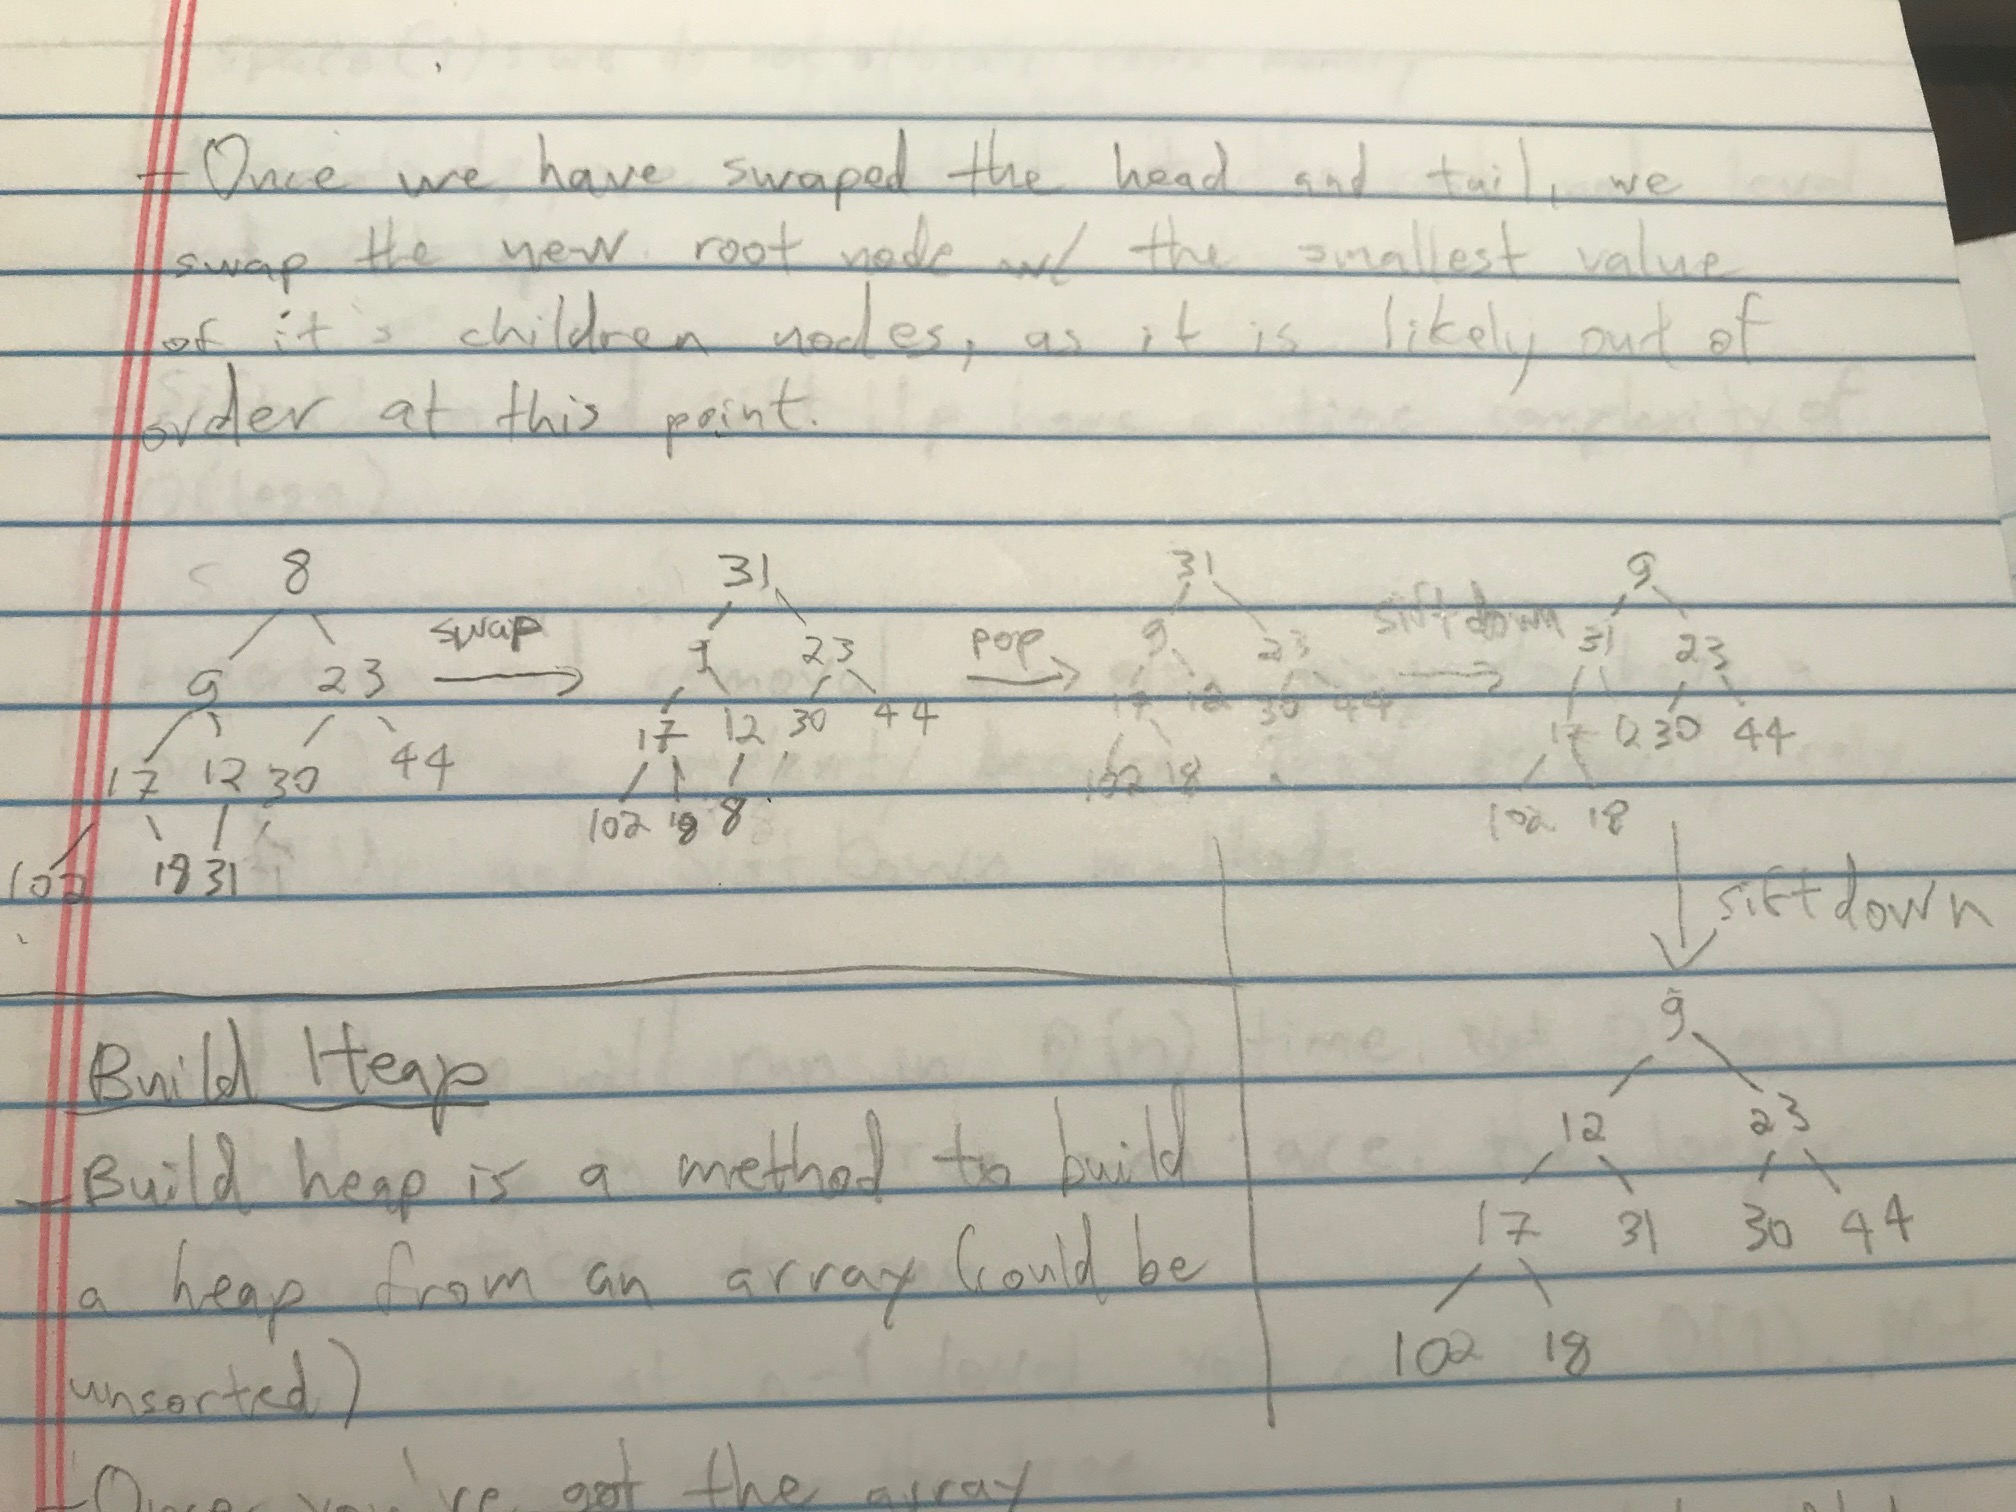 - Once we have swaped the head and tail, we
swap the new root node w/ the smallest value
of it's children nodes, as it is likely out of
order at this point.
8
9 23
17 12 30 44
102 18 31
swap
31
9 23
17 12 30 44
102 18 8
pop
31
9 23
17 12 30 44
102 18
siftdown
9
31 23
17 12 30 44
102 18
siftdown
9
12 23
17 31 30 44
102 18
Build Heap
- Build heap is a method to build
a heap from an array (could be
unsorted)
- Once you've got the array